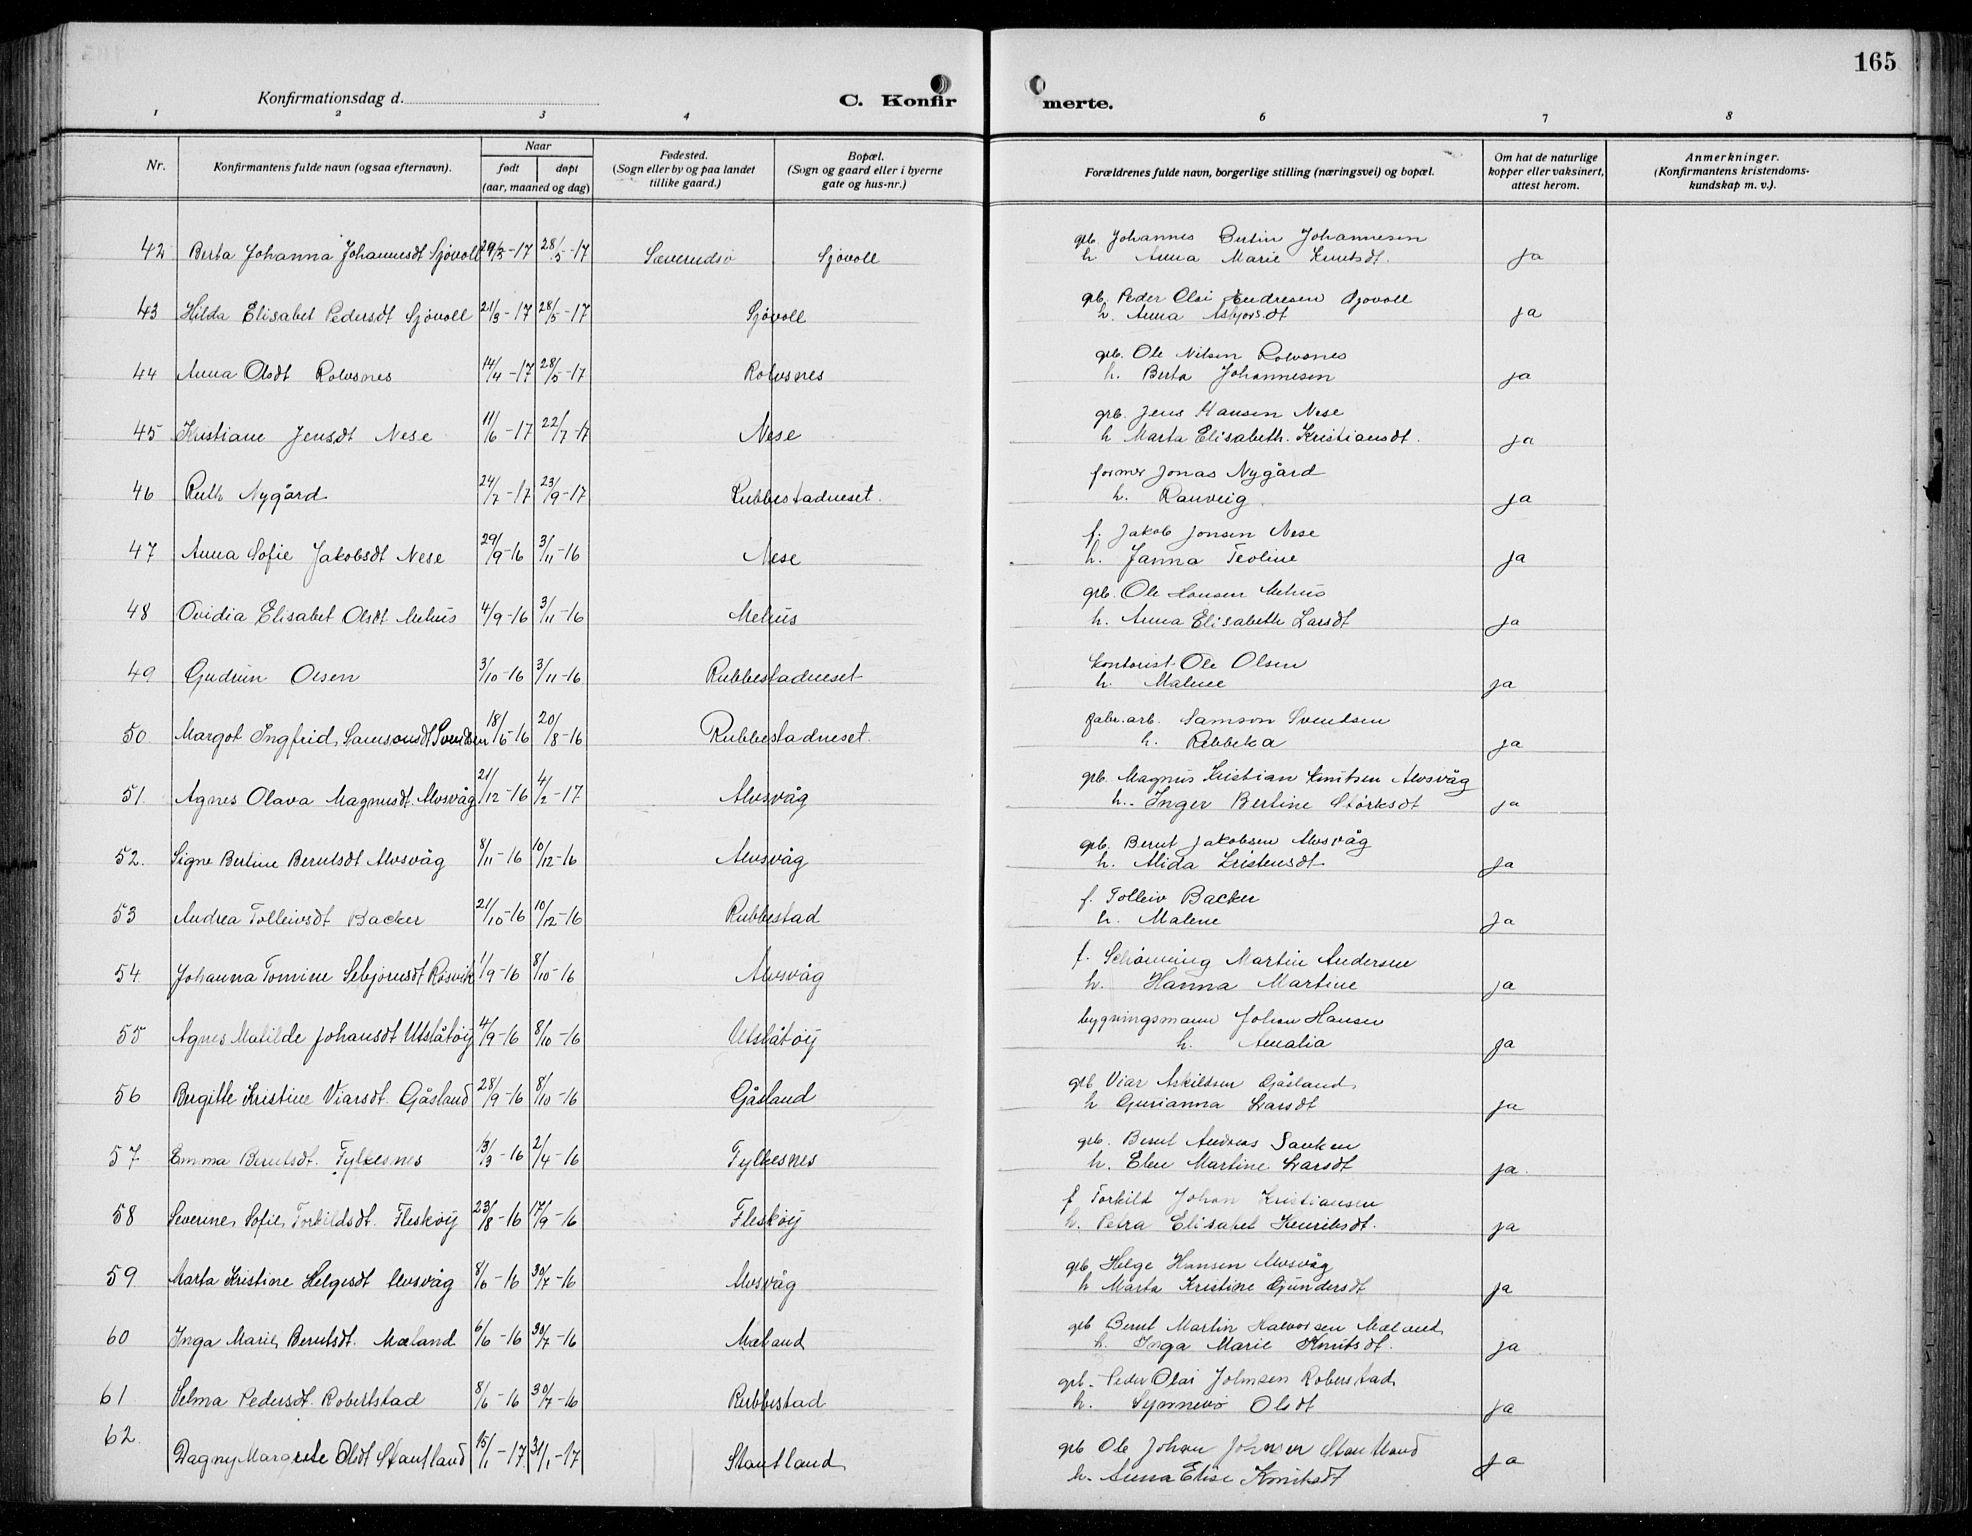 165
Konfirmationsdag d.
C. Konfir
merte.
1 2 3 4 6 7 8
Nr.
Konfirmantens fulde navn (ogsaa efternavn).
Naar
født
døpt
(aar, maaned og dag)
Fødested.
(Sogn eller by og paa landet
tillike gaard.)
Bopæl.
(Sogn og gaard eller i byerne
gate og hus-nr.)
Forældrenes fulde navn, borgerlige stilling (næringsvei) og bopæl.
Om hat de naturlige
kopper eller vaksinert,
attest herom.
Anmerkninger.
(Konfirmantens kristendoms-
kundskap m. v.).
grb. Johannes Bertin Johannesen
42 Berta Johanna Johannesdt Sjøvoll 29/3-17 28/5-17 Sæverudsø Sjøvoll h Anna Marie Knutsdt. ja
grb. Peder Olai Andresen Sjøvoll
43 Hilda Elisabet Pedersdt Sjøvoll 21/3-17 28/5-17 Sjøvoll h. Anna Asbjørsdt ja
grb. Ole Nilsen Rolvsnes
44 Anna Olsdt Rolvsnes 14/4-17 28/5-17 Rolvsnes h. Berta Johannesen ja
grb. Jens Hansen Nese
45 Kristiane Jensdt Nese 11/6-17 22/7-17 Nese h Marta Elisabeth Kristiansdt. ja
former Jonas Nygård
46 Ruth Nygård 24/7-17 23/9-17 Rubbestadneset. h. Ranveig ja
f. Jakob Jonsen Nese
47 Anna Sofie Jakobsdt Nese 29/9-16 3/11-16 Nese h. Janna Teoline ja
grb. Ole Hansen Mehus
48 Ovidia Elisabet Olsdt Mehus 4/9-16 3/11-16 Mehus h. Anna Elisabeth Larsdt ja
kontorist Ole Olsen
49 Gudrun Olsen 3/10-16 3/11-16 Rubbestadneset h. Malene ja
fabr.arb. Samson Svendsen
50 Margot Ingfrid Samsonsdt Svendsen 18/5-16 20/8-16 Rubbestadneset. h. Rebbeka ja
grb. Magnus Kristian Knutsen Alvsvåg
51. Agnes Olava Magnusdt. Alvsvåg 21/12-16 4/2-17 Alvsvåg h. Inger Bertine Størksdt ja
grb. Bernt Jakobsen Alvsvåg
52. Signe Bertine Berntsdt Alvsvåg 8/11-16 10/12-16 Alvsvåg h. Alida Kristensdt ja
f. Tolleiv Backer
53 Andrea Tolleivsdt Backer 21/10-16 10/12-16 Rubbestad h. Malene ja
f. Schønning Martin Andersen
54 Johanna Tomine Sebjørnsdt Røsvik 1/9-16 8/10-16 Alvsvåg h. Hanna Martine ja
bygningsmann Johan Hansen
55 Agnes Matilde Johansdt Utslåtøy 4/9-16 8/10-16 Utslåtøy h. Amalia ja
grb. Viar Askildsen Gåsland
56 Bergitte Kristine Viarsdt. Gåsland 28/9-16 8/10-16 Gåsland h Gurianna Larsdt ja
grb. Bernt Andreas
57 Emma Berntsdt. Fylkesnes 13/3-16 2/4-16 Fylkesnes h. Elen Martine Larsdt ja.
f Torkild Johan Kristiansen
58 Severine Sofie Torkildsdt. Fleskøy 23/8-16 17/9-16 Fleskøy h. Petra Elisabet Henriksdt. ja
grb. Helge Hansen Alvsvåg
59 Marta Kristine Helgesdt Alvsvåg 8/6-16 30/7-16 Alvsvåg h Marta Kristine Gundersdt ja
grb Bernt Martin Halvorsen Mæland
60 Inga Marie Berntsdt. Mæland 6/6-16 30/7-16 Mæland h. Inga Marie Knutsdt. ja
grb. Peder Olai Johnsen Roberstad
61 Selma Pedersdt. Robertstad 8/6-16 30/7-16 Rubbestad h. Synnevø Olsdt ja
grb Ole Johan Johnsen Stautland
62. Dagny Margrete Olsdt Stautland 15/1-17 31/1-17 Stautland h. Anna Elise Knutsdt ja